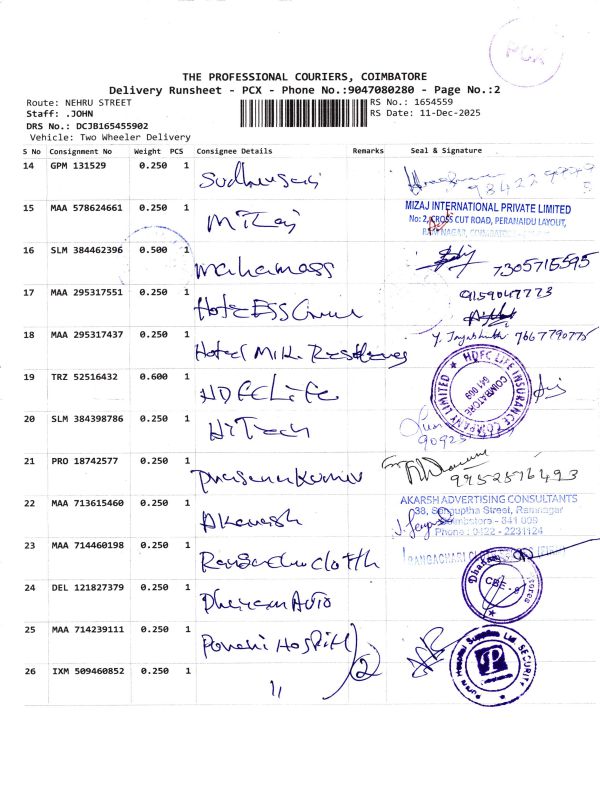 PCX
THE PROFESSIONAL COURIERS, COIMBATORE
Delivery Runsheet - PCX - Phone No.:9047080280 - Page No.:2
Route: NEHRU STREET
RS No.: 1654559
Staff: .JOHN
RS Date: 11-Dec-2025
DRS No.: DCJB165455902
Vehicle: Two Wheeler Delivery
S No Consignment No Weight PCS Consignee Details Remarks Seal & Signature
14 GPM 131529 0.250 1
15 MAA 578624661 0.250 1 Mizaj
MIZAJ INTERNATIONAL PRIVATE LIMITED
No: 2, CROSS CUT ROAD, PERANAIDU LAYOUT,
RAM NAGAR, COIMBATORE
16 SLM 384462396 0.500 1 mahamass 7305715595
17 MAA 295317551 0.250 1 Hotel ESS 9159047773
18 MAA 295317437 0.250 1 Hotel 7667790775
19 TRZ 52516432 0.600 1 HDFC Life
HDFC LIFE INSURANCE COMPANY LIMITED
COIMBATORE
641 009
20 SLM 384398786 0.250 1 HiTech
21 PRO 18742577 0.250 1 prasanna Kumar 9952576493
22 MAA 713615460 0.250 1 Akarash
AKARSH ADVERTISING CONSULTANTS
38, Street, Ramnagar
Coimbatore - 641 009
Phone : 0422 - 2231124
23 MAA 714460198 0.250 1 Rangachari cloth
RANGACHARI
24 DEL 121827379 0.250 1 Auto
CBE - 9
25 MAA 714239111 0.250 1 Hospital
SECURITY
P
26 IXM 509460852 0.250 1 11 2